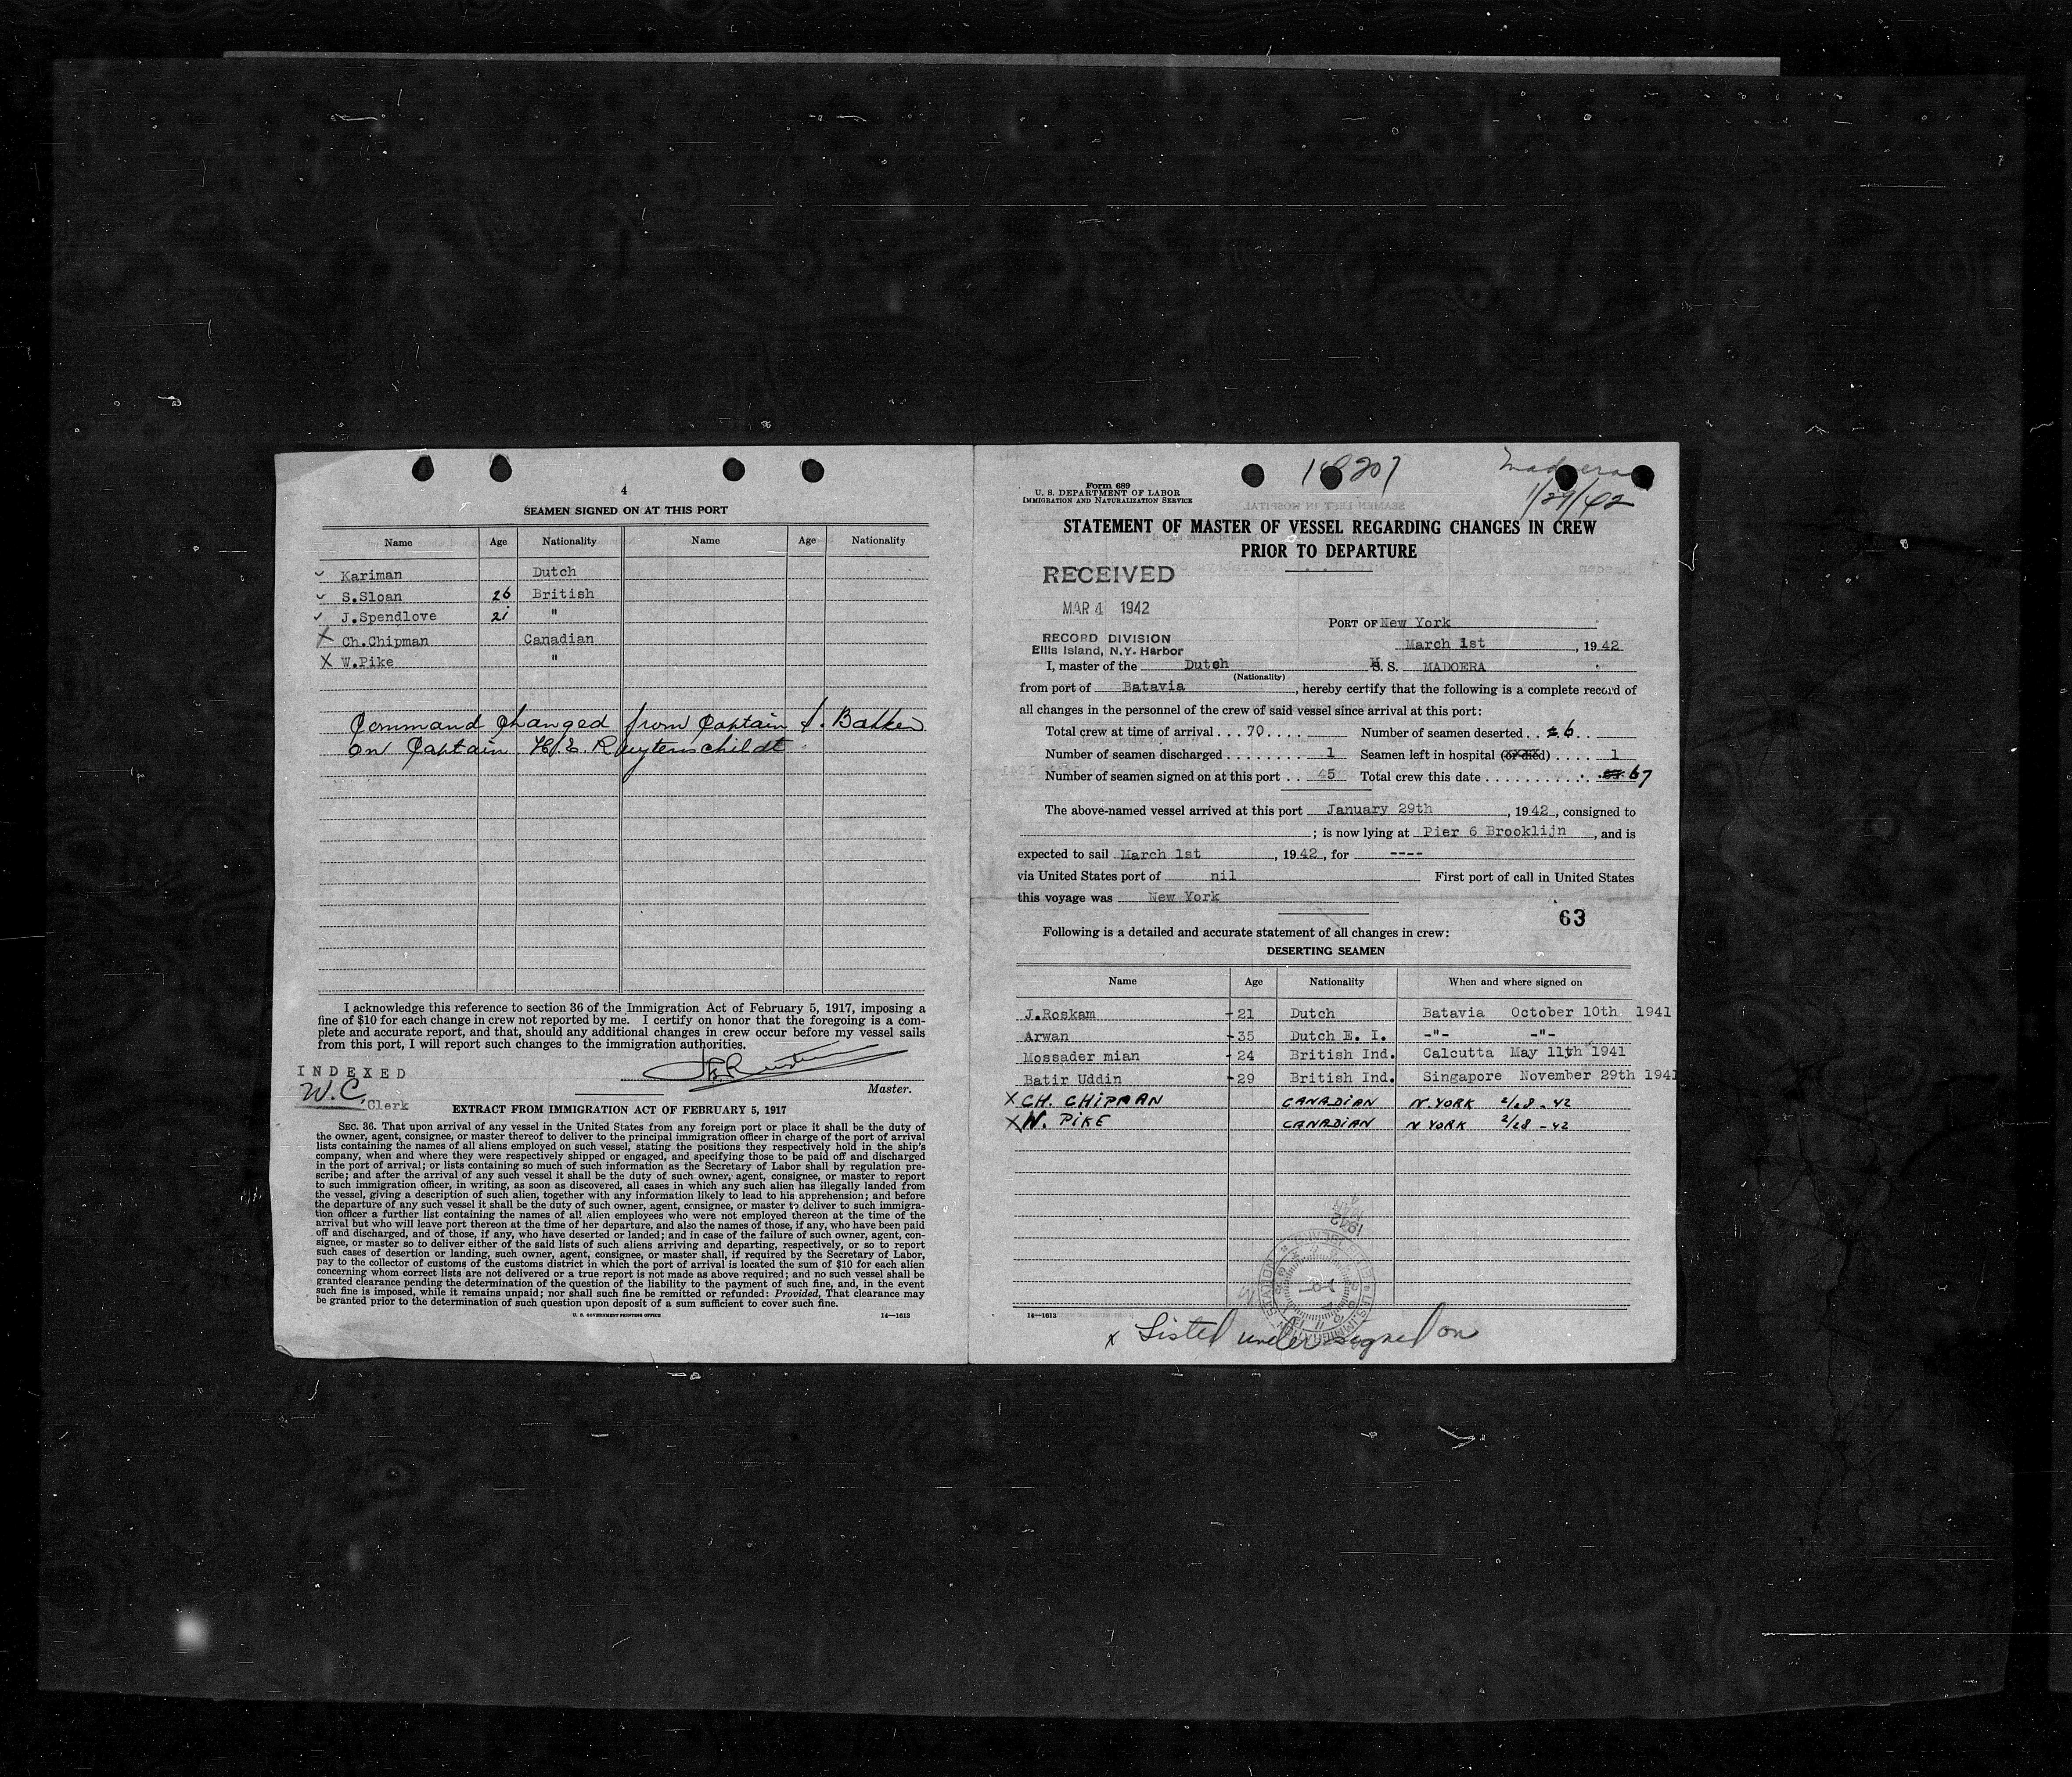 4
SEAMEN SIGNED ON AT THIS PORT
Name Age Nationality Name Age Nationality
Kariman Dutch
S.Sloan 26 British
J.Spendlove 21 "
X Ch.Chipman Canadian
X W.Pike "
Command changed from Captain J. Bakker
on Captain H.E. Ruytenschildt
I acknowledge this reference to section 36 of the Immigration Act of February 5, 1917, imposing a
fine of $10 for each change in crew not reported by me. I certify on honor that the foregoing is a com-
plete and accurate report, and that, should any additional changes in crew occur before my vessel sails
from this port, I will report such changes to the immigration authorities.
Master.
INDEXED
W.C. Clerk
EXTRACT FROM IMMIGRATION ACT OF FEBRUARY 5, 1917
SEC. 36. That upon arrival of any vessel in the United States from any foreign port or place it shall be the duty of
the owner, agent, consignee, or master thereof to deliver to the principal immigration officer in charge of the port of arrival
lists containing the names of all aliens employed on such vessel, stating the positions they respectively hold in the ship's
company, when and where they were respectively shipped or engaged, and specifying those to be paid off and discharged
in the port of arrival; or lists containing so much of such information as the Secretary of Labor shall by regulation pre-
scribe; and after the arrival of any such vessel it shall be the duty of such owner, agent, consignee, or master to report
to such immigration officer, in writing, as soon as discovered, all cases in which any such alien has illegally landed from
the vessel, giving a description of such alien, together with any information likely to lead to his apprehension; and before
the departure of any such vessel it shall be the duty of such owner, agent, consignee, or master to deliver to such immigra-
tion officer a further list containing the names of all alien employees who were not employed thereon at the time of the
arrival but who will leave port thereon at the time of her departure, and also the names of those, if any, who have been paid
off and discharged, and of those, if any, who have deserted or landed; and in case of the failure of such owner, agent, con-
signee, or master so to deliver either of the said lists of such aliens arriving and departing, respectively, or so to report
such cases of desertion or landing, such owner, agent, consignee, or master shall, if required by the Secretary of Labor,
pay to the collector of customs of the customs district in which the port of arrival is located the sum of $10 for each alien
concerning whom correct lists are not delivered or a true report is not made as above required; and no such vessel shall be
granted clearance pending the determination of the question of the liability to the payment of such fine, and, in the event
such fine is imposed, while it remains unpaid; nor shall such fine be remitted or refunded: Provided, That clearance may
be granted prior to the determination of such question upon deposit of a sum sufficient to cover such fine.
U. S. GOVERNMENT PRINTING OFFICE 14—1613
Form 689
U. S. DEPARTMENT OF LABOR
IMMIGRATION AND NATURALIZATION SERVICE
Madoera
1/29/42
STATEMENT OF MASTER OF VESSEL REGARDING CHANGES IN CREW
PRIOR TO DEPARTURE
RECEIVED
MAR 4 1942
RECORD DIVISION
Ellis Island, N.Y. Harbor
PORT OF New York
March 1st, 1942
I, master of the Dutch M. S. MADOERA
(Nationality)
from port of Batavia, hereby certify that the following is a complete record of
all changes in the personnel of the crew of said vessel since arrival at this port:
Total crew at time of arrival . . . 70. . . . Number of seamen deserted . . 6
Number of seamen discharged . . . . . . . . 1 Seamen left in hospital (or died) . . . . 1
Number of seamen signed on at this port . . 45 Total crew this date . . . . . . . . . . 67
The above-named vessel arrived at this port January 29th, 1942, consigned to
; is now lying at Pier 6 Brooklijn, and is
expected to sail March 1st, 1942, for ----
via United States port of nil First port of call in United States
this voyage was New York
63
Following is a detailed and accurate statement of all changes in crew:
DESERTING SEAMEN
Name Age Nationality When and where signed on
J.Roskam 21 Dutch Batavia October 10th 1941
Arwan 35 Dutch E. I. -"- -"-
Mossader mian 24 British Ind. Calcutta May 11th 1941
Batir Uddin 29 British Ind. Singapore November 29th 1941
X CH. CHIPMAN CANADIAN N.YORK 2/28-42
X W. PIKE CANADIAN N YORK 2/28-42
14—1613
x Listed under signed on